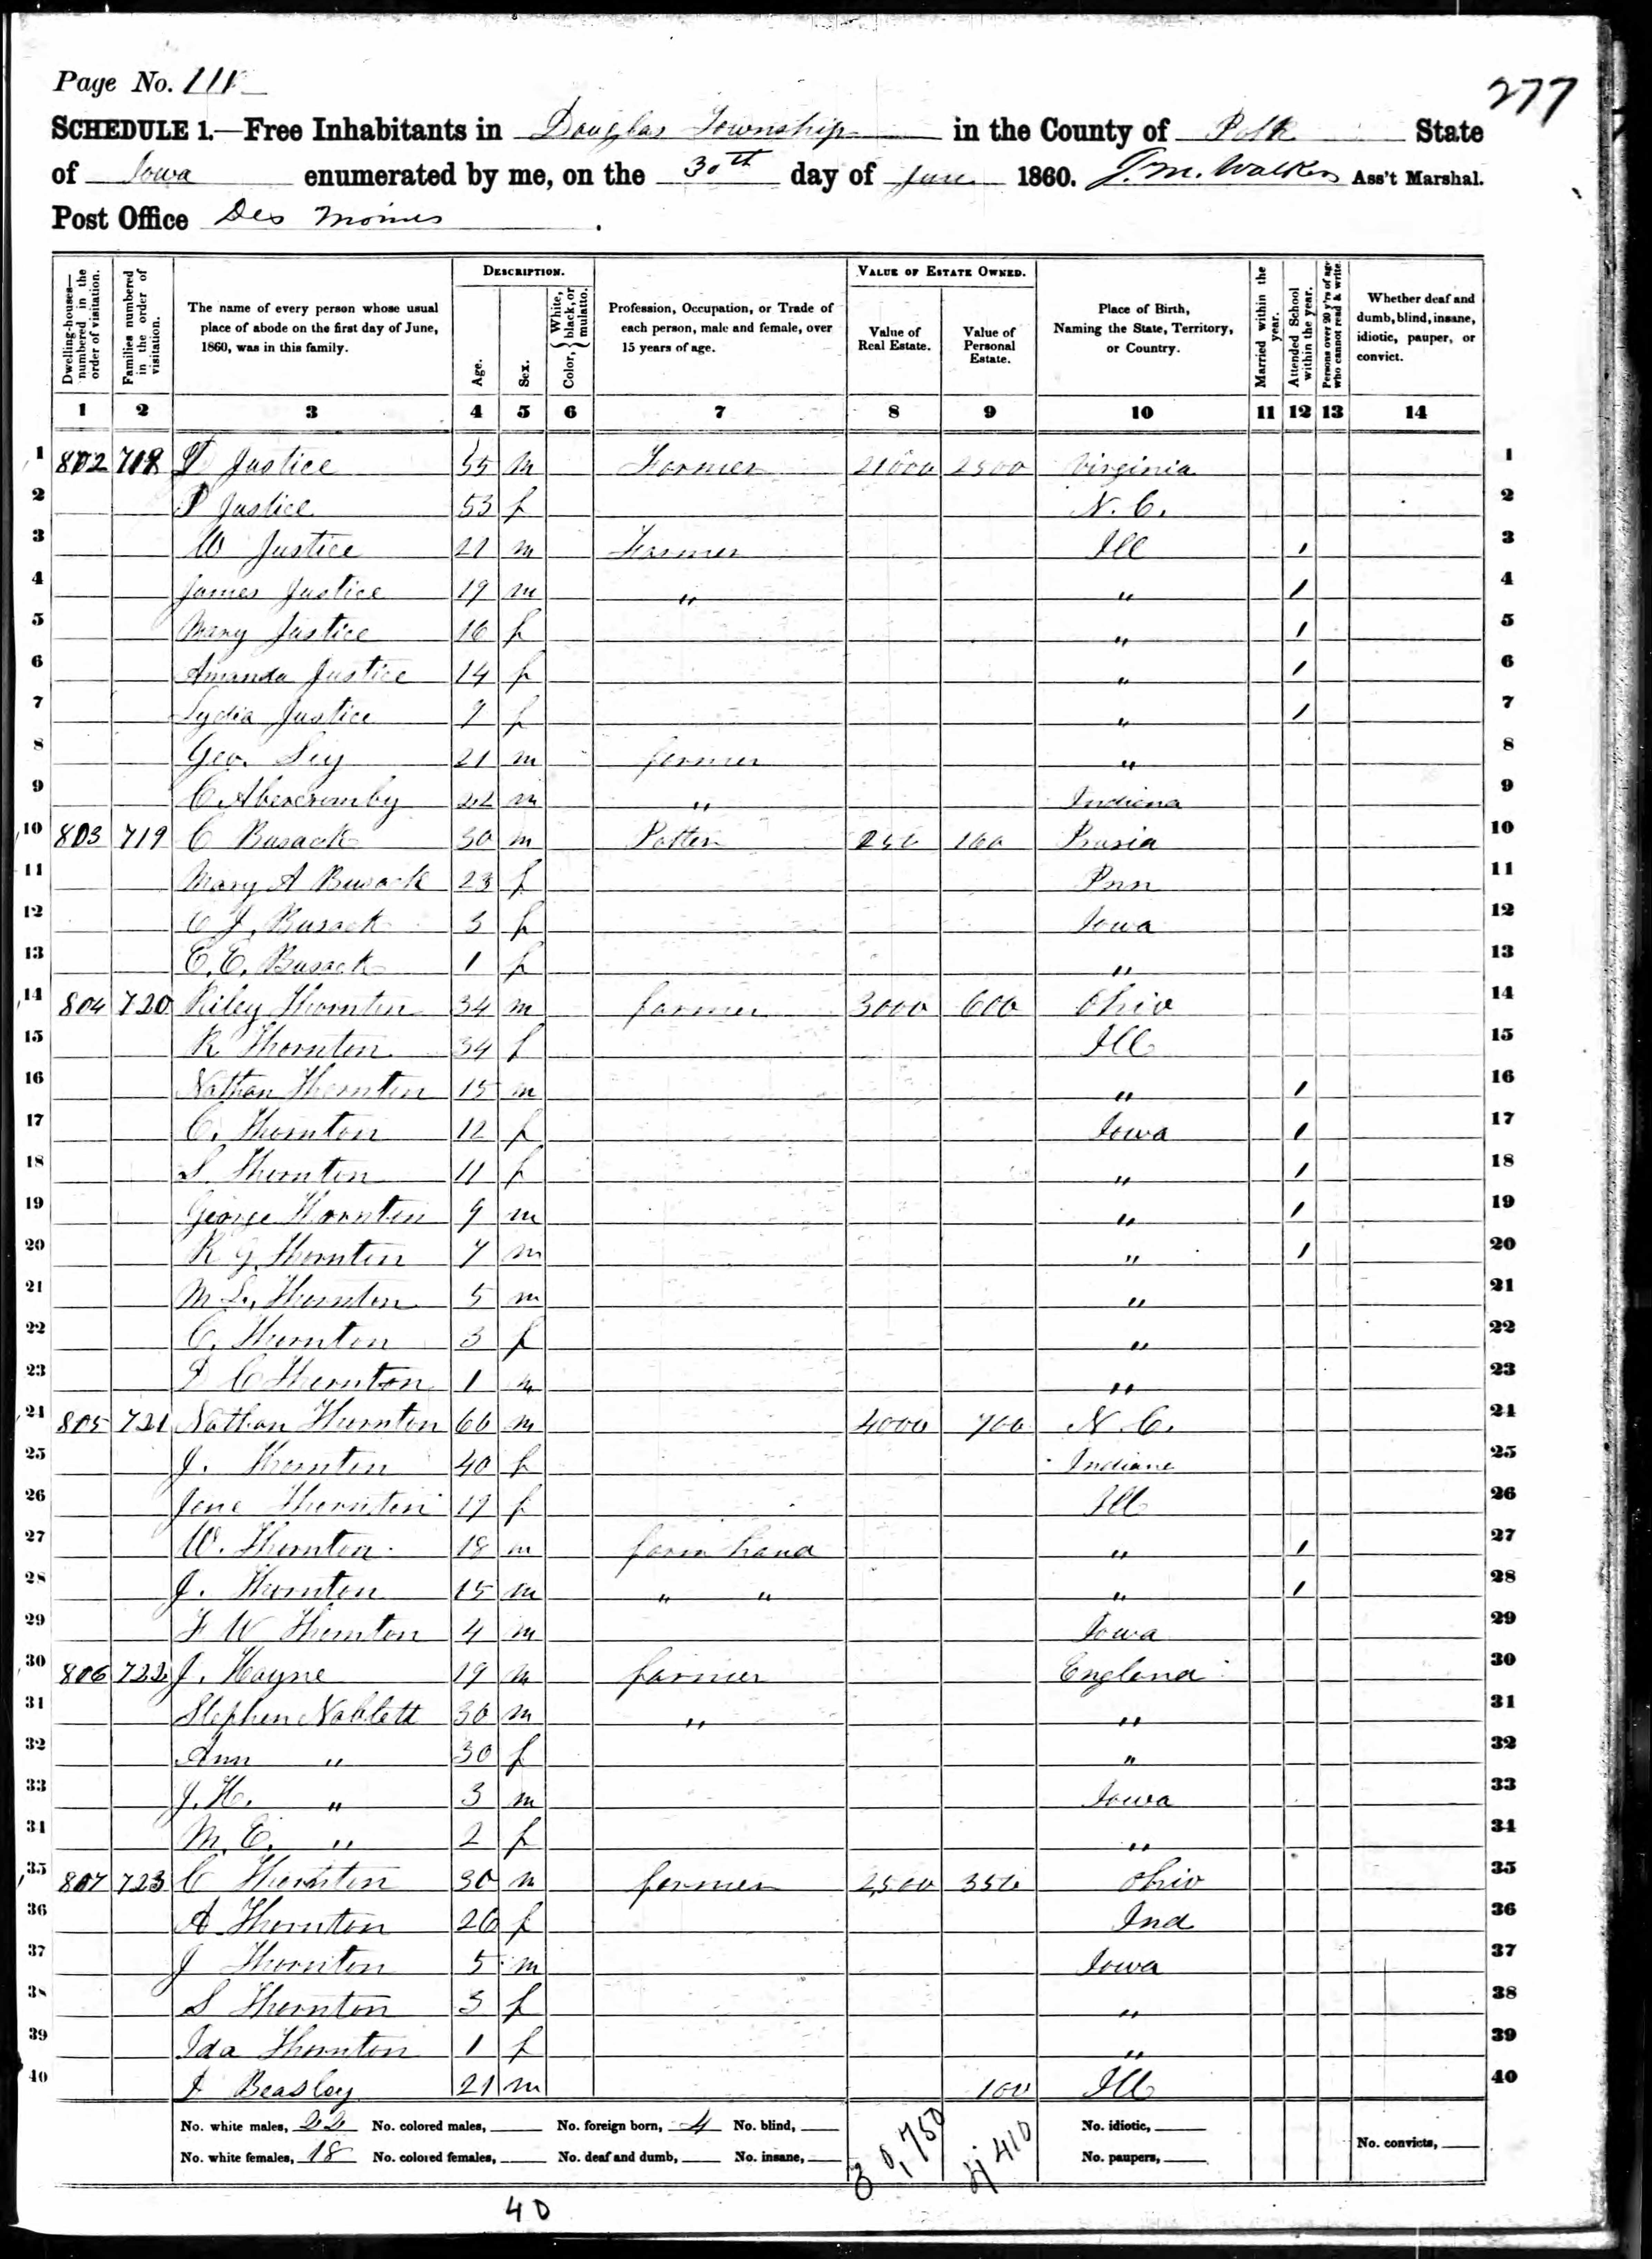 Page No. 111
277
SCHEDULE 1.—Free Inhabitants in Douglas Township in the County of Polk State
of Iowa enumerated by me, on the 30th day of June 1860. J. M. Walker Ass't Marshal.
Post Office Des Moines.
Dwelling-houses—numbered in the order of visitation.
Families numbered in the order of visitation.
The name of every person whose usual place of abode on the first day of June, 1860, was in this family.
DESCRIPTION.
Age.
Sex.
Color, { White, black, or mulatto.
Profession, Occupation, or Trade of each person, male and female, over 15 years of age.
VALUE OF ESTATE OWNED.
Value of Real Estate.
Value of Personal Estate.
Place of Birth, Naming the State, Territory, or Country.
Married within the year.
Attended School within the year.
Persons over 20 y'rs of age who cannot read & write.
Whether deaf and dumb, blind, insane, idiotic, pauper, or convict.
1 2 3 4 5 6 7 8 9 10 11 12 13 14
1 802 718 Justice 55 m Farmer 21000 2500 Virginia 1
2 Justice 53 f N. C. 2
3 W Justice 21 m Farmer Ill / 3
4 James Justice 19 m " " / 4
5 Mary Justice 16 f " / 5
6 Amanda Justice 14 f " / 6
7 Lydia Justice 9 f " / 7
8 Geo. 21 m farmer " 8
9 C. Abercromby 22 m " Indiana 9
10 803 719 C Busack 30 m Potter 250 160 Prusia 10
11 Mary A Busack 23 f Pnn 11
12 C J. Busack 3 f Iowa 12
13 C. E. Busack 1 f " 13
14 804 720 Riley Thornton 34 m farmer 3000 600 Ohio 14
15 R Thornton 34 f Ill 15
16 Nathan Thornton 15 m " / 16
17 C. Thornton 12 f Iowa / 17
18 S Thornton 11 f " / 18
19 George Thornton 9 m " / 19
20 R G Thornton 7 m " / 20
21 M L. Thornton 5 m " 21
22 C. Thornton 3 f " 22
23 C Thornton 1 m " 23
24 805 721 Nathan Thornton 60 m 4000 700 N. C. 24
25 J. Thornton 40 f Indiana 25
26 Jane Thornton 19 f Ill 26
27 W. Thornton 18 m farm hand " / 27
28 J. Thornton 15 m " " " / 28
29 F W Thornton 4 m Iowa 29
30 806 722 J. Hayne 19 m farmer England 30
31 Stephen Noblett 30 m " " 31
32 Ann " 30 f " 32
33 J. H. " 3 m Iowa 33
34 M. E. " 2 f " 34
35 807 723 C Thornton 30 m farmer 2,500 350 Ohio 35
36 A Thornton 26 f Ind 36
37 J Thornton 5 m Iowa 37
38 S Thornton 3 f " 38
39 Ida Thornton 1 f " 39
40 Beasley 21 m 100 Ill 40
No. white males, 22 No. colored males, No. foreign born, 4 No. blind, 30,750 4,410 No. idiotic,
No. white females, 18 No. colored females, No. deaf and dumb, No. insane, No. paupers, No. convicts,
40